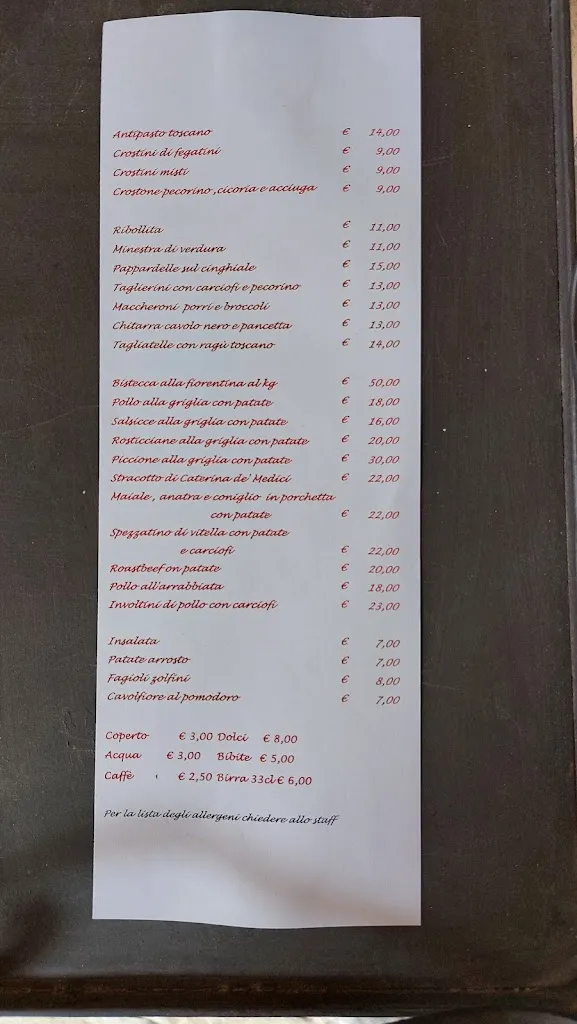 Antipasto toscano € 14,00
Crostini di fegatini € 9,00
Crostini misti € 9,00
Crostone pecorino ,cicoria e acciuga € 9,00
Ribollita € 11,00
Minestra di verdura € 11,00
Pappardelle sul cinghiale € 15,00
Taglierini con carciofi e pecorino € 13,00
Maccheroni porri e broccoli € 13,00
Chitarra cavolo nero e pancetta € 13,00
Tagliatelle con ragù toscano € 14,00
Bistecca alla fiorentina al kg € 50,00
Pollo alla griglia con patate € 18,00
Salsicce alla griglia con patate € 16,00
Rosticciane alla griglia con patate € 20,00
Piccione alla griglia con patate € 30,00
Stracotto di Caterina de' Medici € 22,00
Maiale , anatra e coniglio in porchetta
con patate € 22,00
Spezzatino di vitella con patate
e carciofi € 22,00
Roastbeef on patate € 20,00
Pollo all'arrabbiata € 18,00
Involtini di pollo con carciofi € 23,00
Insalata € 7,00
Patate arrosto € 7,00
Fagioli zolfini € 8,00
Cavolfiore al pomodoro € 7,00
Coperto € 3,00 Dolci € 8,00
Acqua € 3,00 Bibite € 5,00
Caffè € 2,50 Birra 33cl € 6,00
Per la lista degli allergeni chiedere allo staff